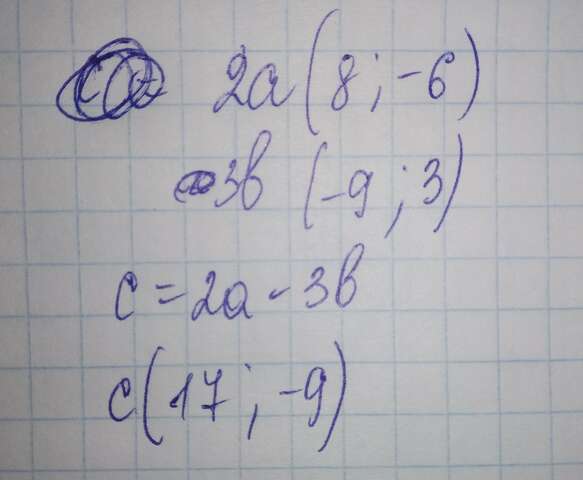 2a (8 ; -6)
3b (-9 ; 3)
c = 2a - 3b
c (17 ; -9)